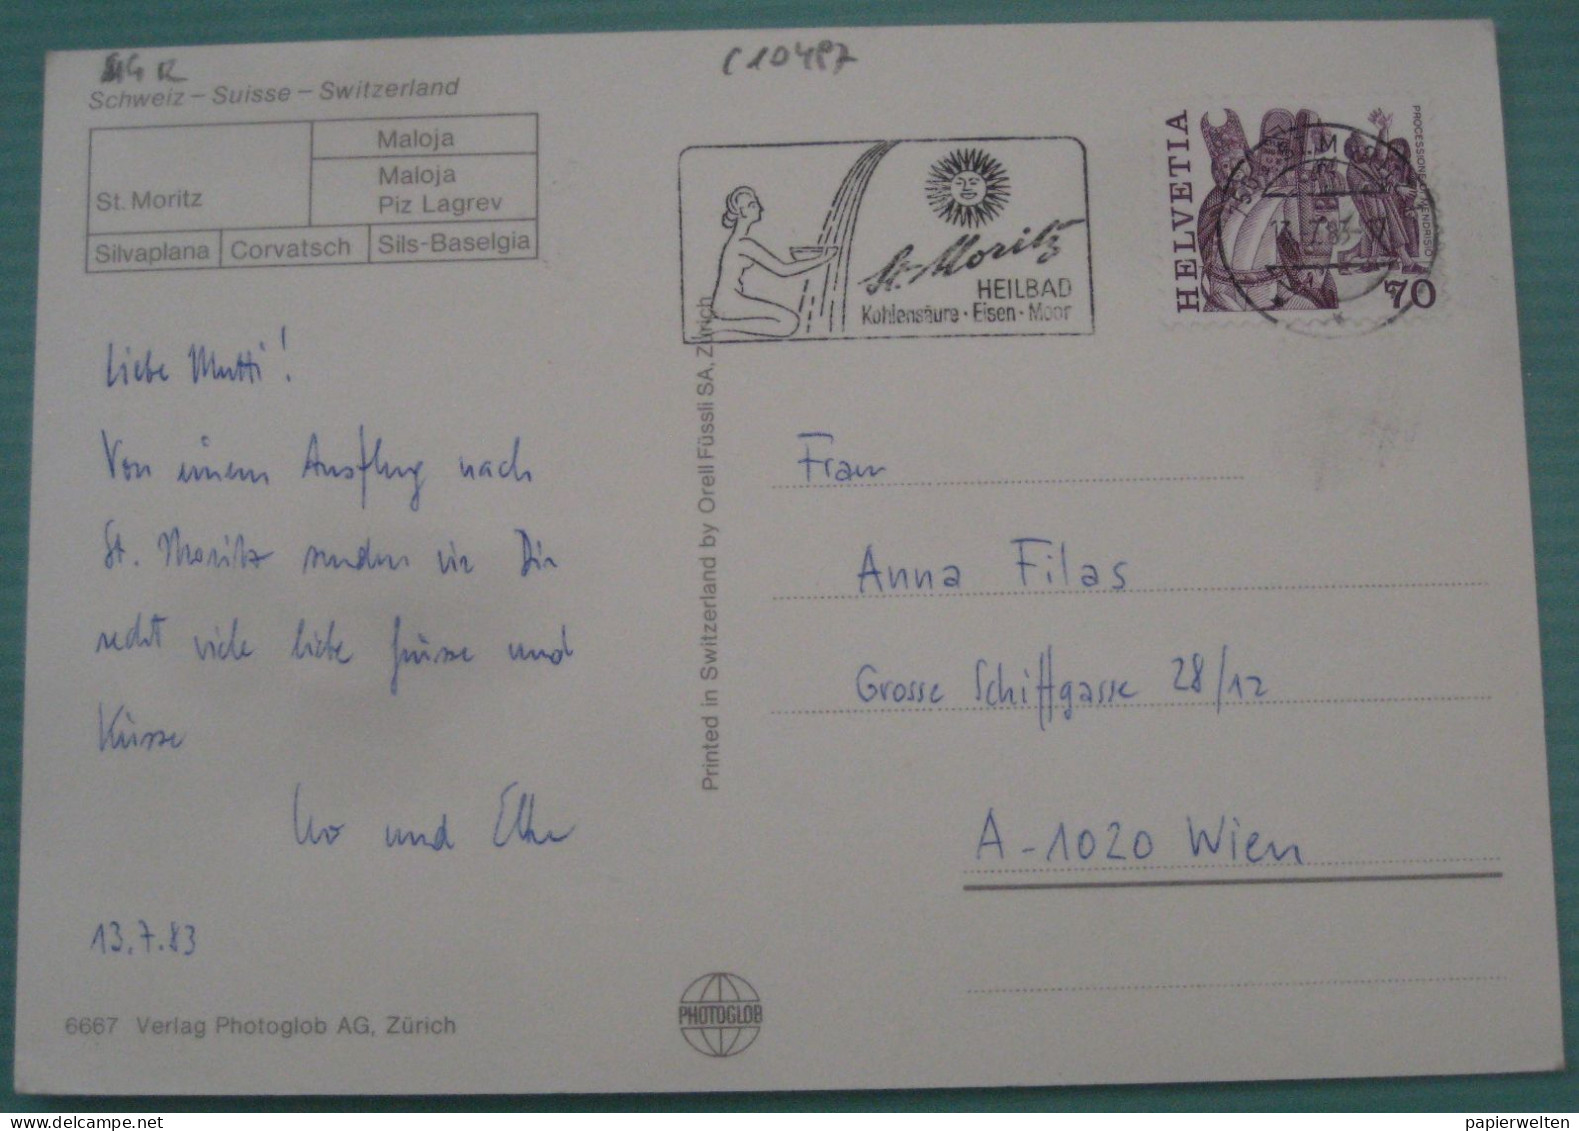 C10497
Schweiz – Suisse – Switzerland
Maloja
St. Moritz
Maloja
Piz Lagrev
Silvaplana
Corvatsch
Sils-Baselgia
St. Moritz
HEILBAD
Kohlensäure · Eisen · Moor
HELVETIA
70
Liebe Mutti!
Von einem Ausflug nach
St. Moritz senden wir Dir
recht viele liebe Grüsse und
Küsse
und Elke
13.7.83
Printed in Switzerland by Orell Füssli SA, Zürich
Frau
Anna Filas
Grosse Schiffgasse 28/12
A-1020 Wien
6667 Verlag Photoglob AG, Zürich
PHOTOGLOB
papierwelten